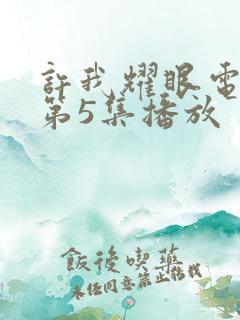 許我耀眼電
第5集播放
飯後喫藥
未径同意禁止转载